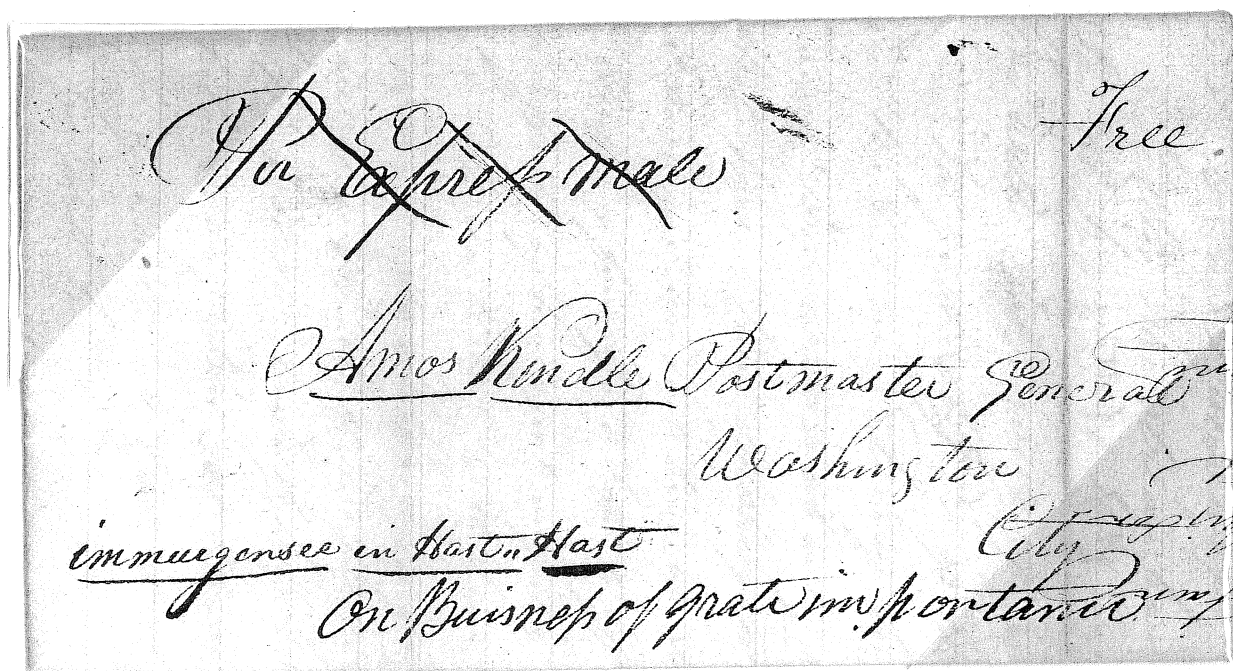 Per Express male
Free
Amos Kendle Postmaster General
Washington
City
immurgensee in Hast" Hast
On Buisness of grate importance